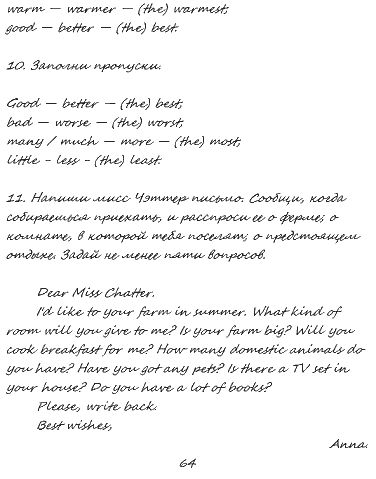 warm – warmer – (the) warmest;
good – better – (the) best.
10. Заполни пропуски.
Good – better – (the) best;
bad – worse – (the) worst;
many / much – more – (the) most;
little - less - (the) least.
11. Напиши мисс Чэттер письмо. Сообщи, когда
собираешься приехать, и расспроси ее о ферме; о
комнате, в которой тебя поселят; о предстоящем
отдыхе. Задай не менее пяти вопросов.
Dear Miss Chatter.
I'd like to your farm in summer. What kind of
room will you give to me? Is your farm big? Will you
cook breakfast for me? How many domestic animals do
you have? Have you got any pets? Is there a TV set in
your house? Do you have a lot of books?
Please, write back.
Best wishes,
Anna.
64